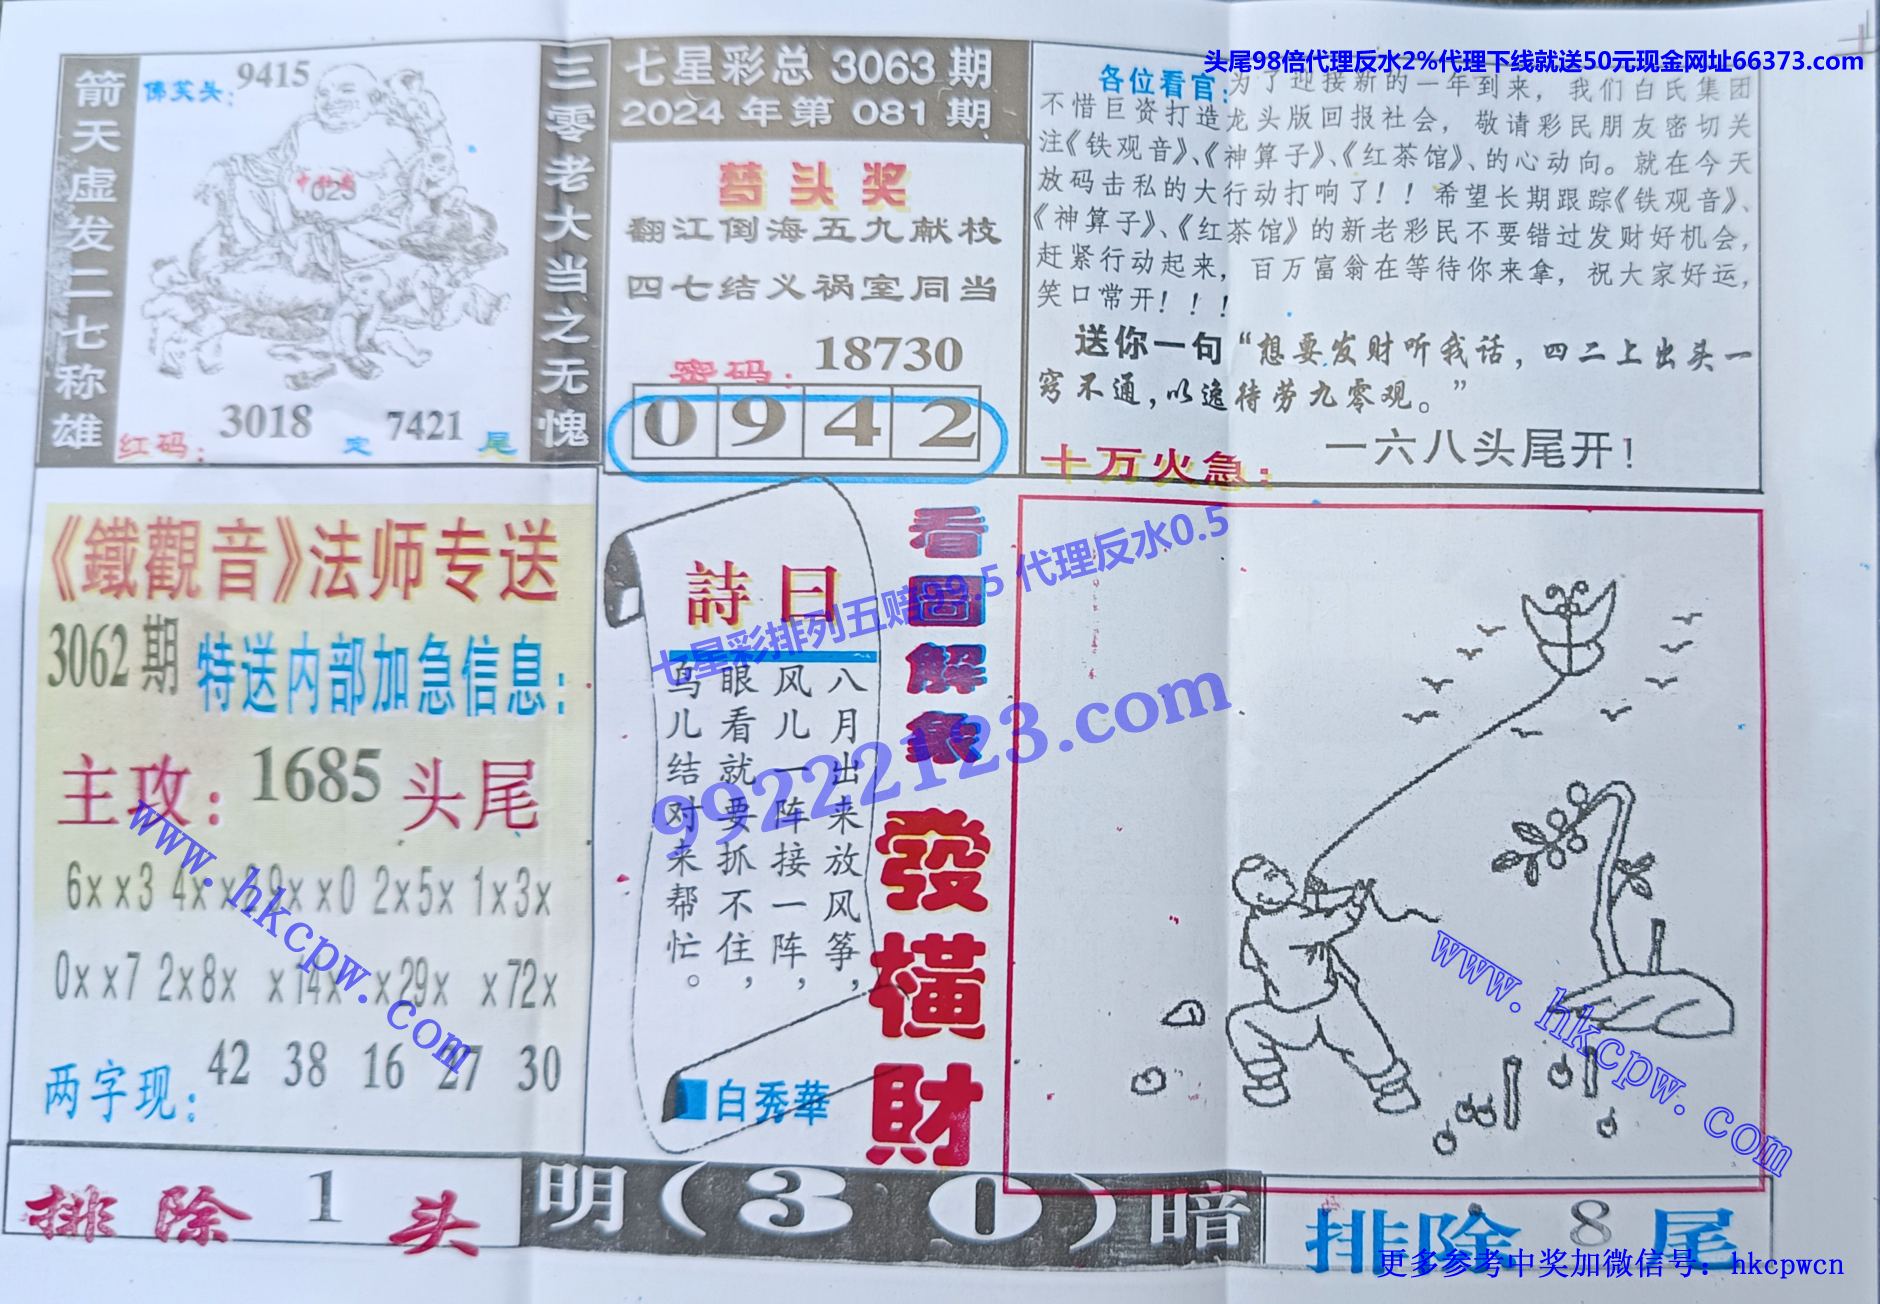 头尾98倍代理反水2%代理下线就送50元现金网址66373.com
箭天虚发二七称雄
佛笑头:
9415
中肚脐
025
红码:
3018
定
7421
尾
三零老大当之无愧
七星彩总 3063 期
2024 年第 081 期
梦头奖
翻江倒海五九献枝
四七结义祸室同当
密码:
18730
0 9 4 2
各位看官:为了迎接新的一年到来,我们白氏集团
不惜巨资打造龙头版回报社会,敬请彩民朋友密切关
注《铁观音》、《神算子》、《红茶馆》、的心动向。就在今天
放码击私的大行动打响了!!希望长期跟踪《铁观音》、
《神算子》、《红茶馆》的新老彩民不要错过发财好机会,
赶紧行动起来,百万富翁在等待你来拿,祝大家好运,
笑口常开!!!
送你一句“想要发财听我话,四二上出头一
窍不通,以逸待劳九零观。”
十万火急:
一六八头尾开!
《鐵觀音》法师专送
3062 期
特送内部加急信息:
主攻:
1685
头尾
6xx3 4xx2 9xx0 2x5x 1x3x
0xx7 2x8x x14x x29x x72x
两字现:
42 38 16 27 30
詩曰
八月出来放风筝,
风儿一阵接一阵,
眼看就要抓不住,
鸟儿结对来帮忙。
白秀華
看圖解象
發橫財
七星彩排列五赔99.5 代理反水0.5
99222123.com
www.hkcpw.com
www.hkcpw.com
排除
1
头
明(30)暗
排除
8
尾
更多参考中奖加微信号:hkcpwcn